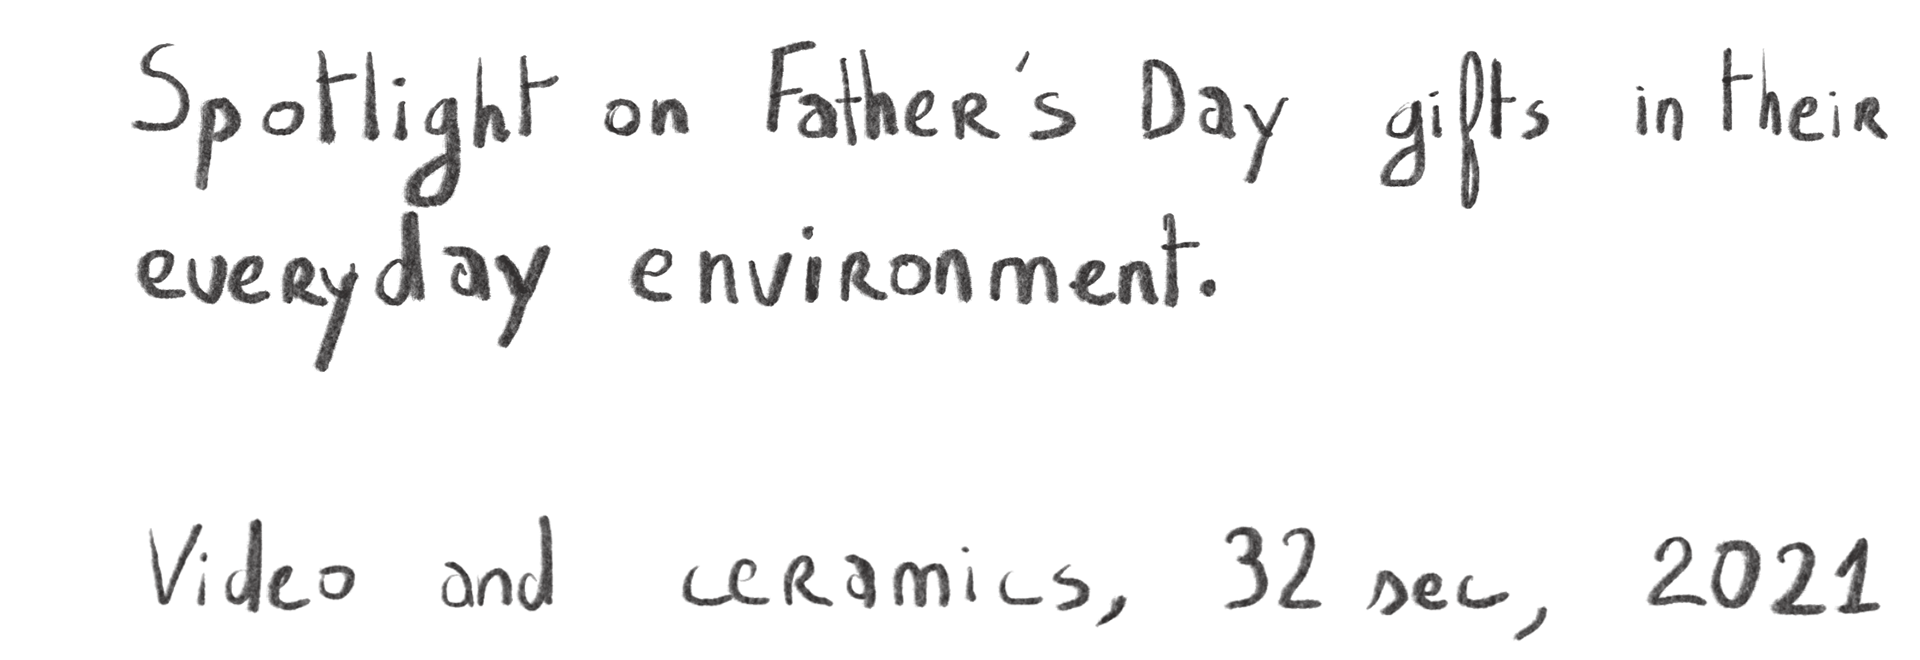 Spotlight on Father's Day gifts in their
everyday environment.
Video and ceramics, 32 sec, 2021